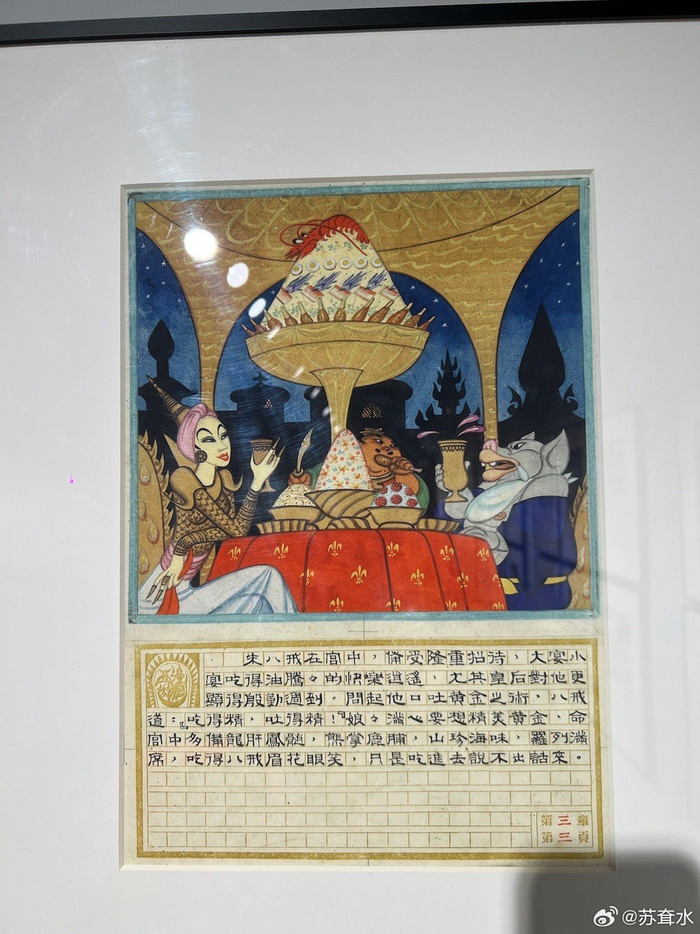 朱八戒在宮中，備受隆重招待，大宴小
宴吃得油騰々的快樂逍遙，尤其皇后對他更
顯得殷勤週到。問起他口吐黃金之術，八戒
道：「吃得精，吐得精！」娘々滿心要想精美黃金，命
宮中多備龍肝鳳髓，熊掌鹿脯，山珍海味，羅列滿
席，吃得八戒眉花眼笑，只是吃進去說不出話來。
第三章
第三頁
@苏耷水